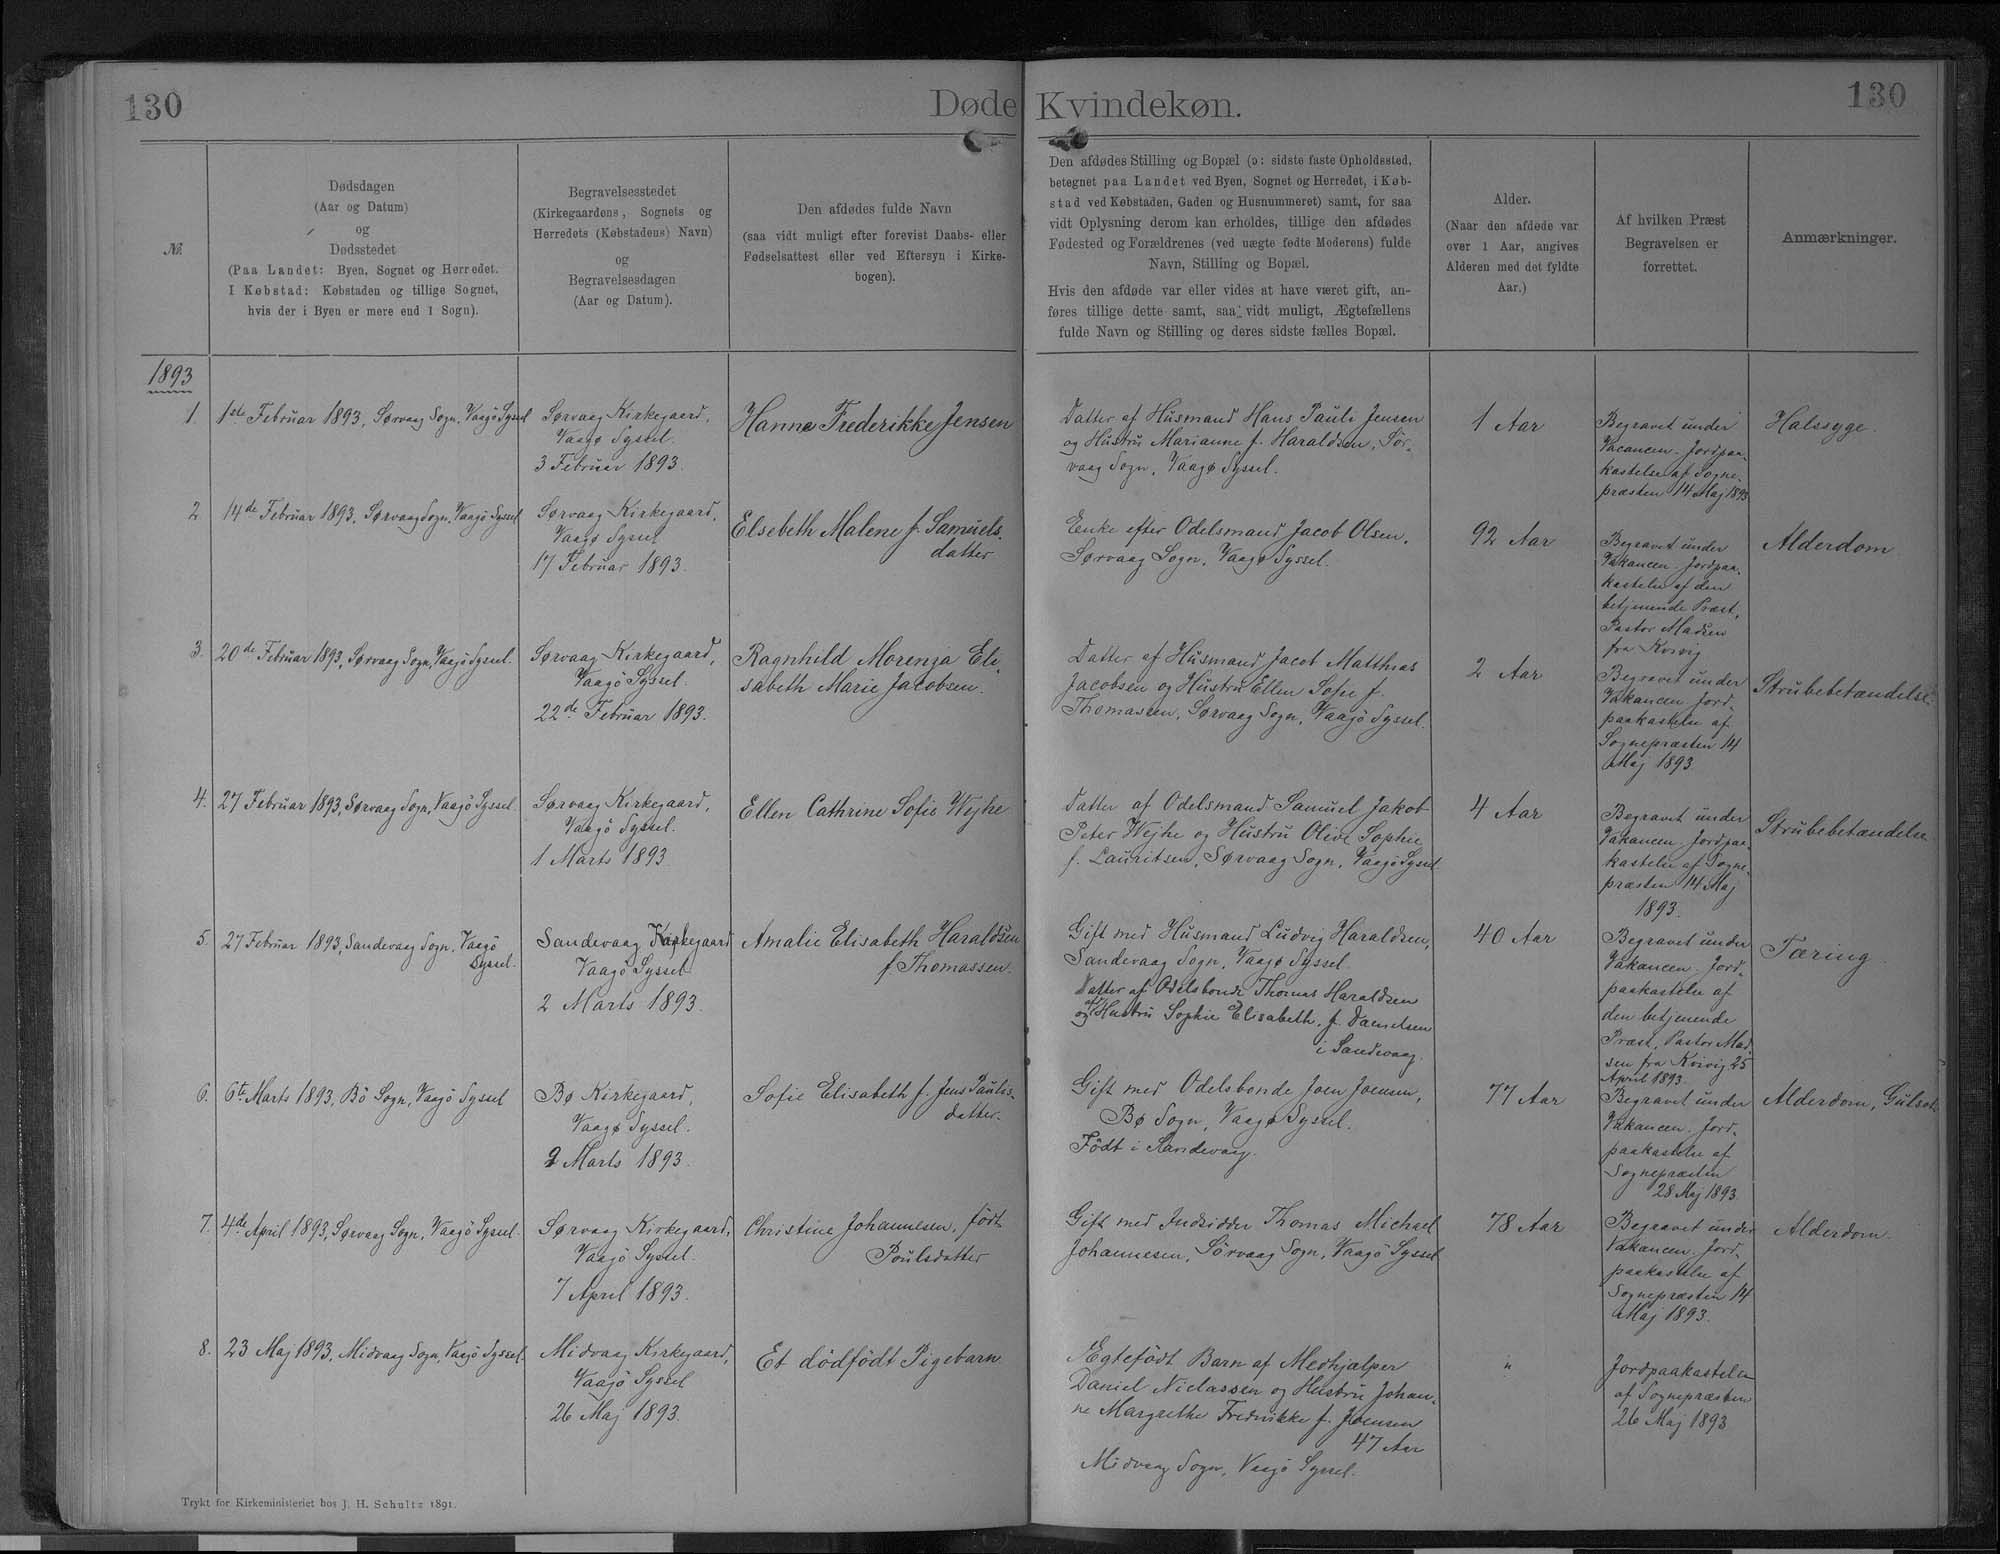 130
Døde Kvindekøn.
130
№.
Dødsdagen
(Aar og Datum)
og
Dødsstedet
(Paa Landet: Byen, Sognet og Herredet.
I Købstad: Købstaden og tillige Sognet,
hvis der i Byen er mere end 1 Sogn).
Begravelsesstedet
(Kirkegaardens, Sognets og
Herredets (Købstadens) Navn)
og
Begravelsesdagen
(Aar og Datum).
Den afdødes fulde Navn
(saa vidt muligt efter forevist Daabs- eller
Fødselsattest eller ved Eftersyn i Kirke-
bogen).
Den afdødes Stilling og Bopæl (ɔ: sidste faste Opholdssted,
betegnet paa Landet ved Byen, Sognet og Herredet, i Køb-
stad ved Købstaden, Gaden og Husnummeret) samt, for saa
vidt Oplysning derom kan erholdes, tillige den afdødes
Fødested og Forældrenes (ved uægte fødte Moderens) fulde
Navn, Stilling og Bopæl.
Hvis den afdøde var eller vides at have været gift, an-
føres tillige dette samt, saa vidt muligt, Ægtefællens
fulde Navn og Stilling og deres sidste fælles Bopæl.
Alder.
(Naar den afdøde var
over 1 Aar, angives
Alderen med det fyldte
Aar.)
Af hvilken Præst
Begravelsen er
forrettet.
Anmærkninger.
1893
1.
1ste Februar 1893, Sørvaag Sogn, Vaagö Syssel
Sørvaag Kirkegaard,
Vaagø Syssel.
3 Februar 1893.
Hanne Frederikke Jensen
Datter af Husmand Hans Pauli Jensen
og Hustru Marianne f. Haraldsen, Sør-
vaag Sogn, Vaagø Syssel.
1 Aar
Begravet under
Vacancen. Jordpaa-
kastelse af Sogne-
præsten 14 Maj 1893
Halssyge.
2
14de Februar 1893, Sørvaag Sogn, Vaagö Syssel
Sørvaag Kirkegaard,
Vaagø Syssel
17 Februar 1893.
Elsebeth Malene f. Samuels-
datter
Enke efter Odelsmand Jacob Olsen,
Sørvaag Sogn, Vaagø Syssel.
92 Aar
Begravet under
Vakancen. Jordpaa-
kastelse af den
betjenende Præst,
Pastor Madsen
fra Kvivig
Alderdom
3.
20de Februar 1893, Sørvaag Sogn, Vaagö Syssel.
Sørvaag Kirkegaard,
Vaagö Syssel.
22de Februar 1893.
Ragnhild Morenza Eli-
sabeth Marie Jacobsen.
Datter af Husmand Jacob Matthias
Jacobsen og Hustru Ellen Sofie f.
Thomassen, Sørvaag Sogn, Vaagö Syssel.
2 Aar
Begravet under
Vakancen Jord-
paakastelse af
Sognepræsten 14
Maj 1893
Strubebetændelse
4.
27 Februar 1893, Sørvaag Sogn, Vaagö Syssel.
Sørvaag Kirkegaard,
Vaagö Syssel.
1 Marts 1893.
Ellen Cathrine Sofie Wejhe
Datter af Odelsmand Samuel Jakob
Peter Wejhe og Hustru Olive Sophie
f. Lauritsen, Sørvaag Sogn, Vaagö Syssel
4 Aar
Begravet under
Vakancen. Jordpaa-
kastelse af Sogne-
præsten 14 Maj
1893.
Strubebetændelse
5.
27 Februar 1893, Sandevaag Sogn, Vaagö
Syssel.
Sandevaag Kirkegaard
Vaagö Syssel
2 Marts 1893.
Amalie Elisabeth Haraldsen
f. Thomassen.
Gift med Husmand Ludvig Haraldsen,
Sandevaag Sogn, Vaagø Syssel.
Datter af Odelsbonde Thomas Haraldsen
og Hustru Sophie Elisabeth, f. Danielsen
i Sandevaag.
40 Aar
Begravet under
Vakancen. Jord-
paakastelse af
den betjenende
Præst, Pastor Mad-
sen fra Kvivig 25
April 1893.
Tæring.
6.
6te Marts 1893, Bö Sogn, Vaagö Syssel
Bø Kirkegaard,
Vaagø Syssel.
2 Marts 1893.
Sofie Elisabeth f. Jens Paulis-
datter.
Gift med Odelsbonde Joen Joensen,
Bø Sogn, Vaagø Syssel.
Född i Sandevaag.
77 Aar
Begravet under
Vakancen. Jord-
paakastelse af
Sognepræsten
28 Maj 1893.
Alderdom, Gulsot.
7.
4de April 1893, Sørvaag Sogn, Vaagö Syssel.
Sørvaag Kirkegaard,
Vaagö Syssel.
7 April 1893.
Christine Johannesen, født
Poulsdatter
Gift med Indsidder Thomas Michael
Johannesen, Sörvaag Sogn, Vaagö Syssel
78 Aar
Begravet under
Vakancen. Jord-
paakastelse af
Sognepræsten 14
Maj 1893.
Alderdom.
8.
23 Maj 1893, Midvaag Sogn, Vaagö Syssel.
Midvaag Kirkegaard,
Vaagö Syssel
26 Maj 1893.
Et dödfödt Pigebarn
Ægtefödt Barn af Medhjælper
Daniel Niclassen og Hustru Johan-
ne Margrethe Fredrikke f. Joensen
47 Aar
Midvaag Sogn, Vaagö Syssel.
"
Jordpaakastelse
af Sognepræsten
26 Maj 1893
Trykt for Kirkeministeriet hos J. H. Schultz 1891.